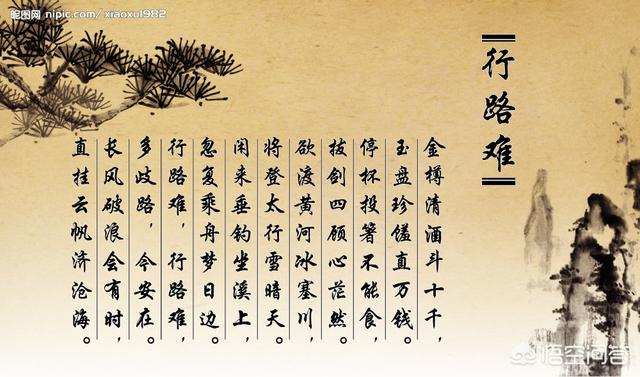 昵图网 nipic.com/xiaoxu1982
行路难
金樽清酒斗十千，
玉盘珍馐直万钱。
停杯投箸不能食，
拔剑四顾心茫然。
欲渡黄河冰塞川，
将登太行雪暗天。
闲来垂钓坐溪上，
忽复乘舟梦日边。
行路难，行路难，
多歧路，今安在。
长风破浪会有时，
直挂云帆济沧海。
悟空问答